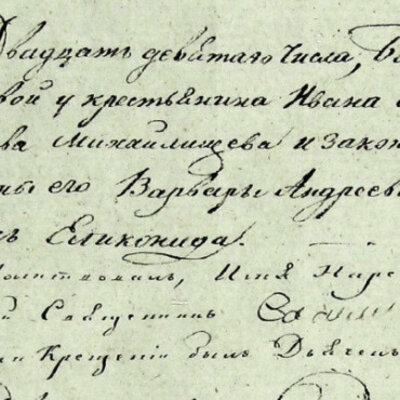 Двадцать девятаго числа,
вой у крестьянина Ивана
ва Михаилищева и закон
ны его Варвары Андреев
Еликонида.
Молитвовалъ, Имя Наре
й Священникъ
и Крещении былъ Дьячекъ